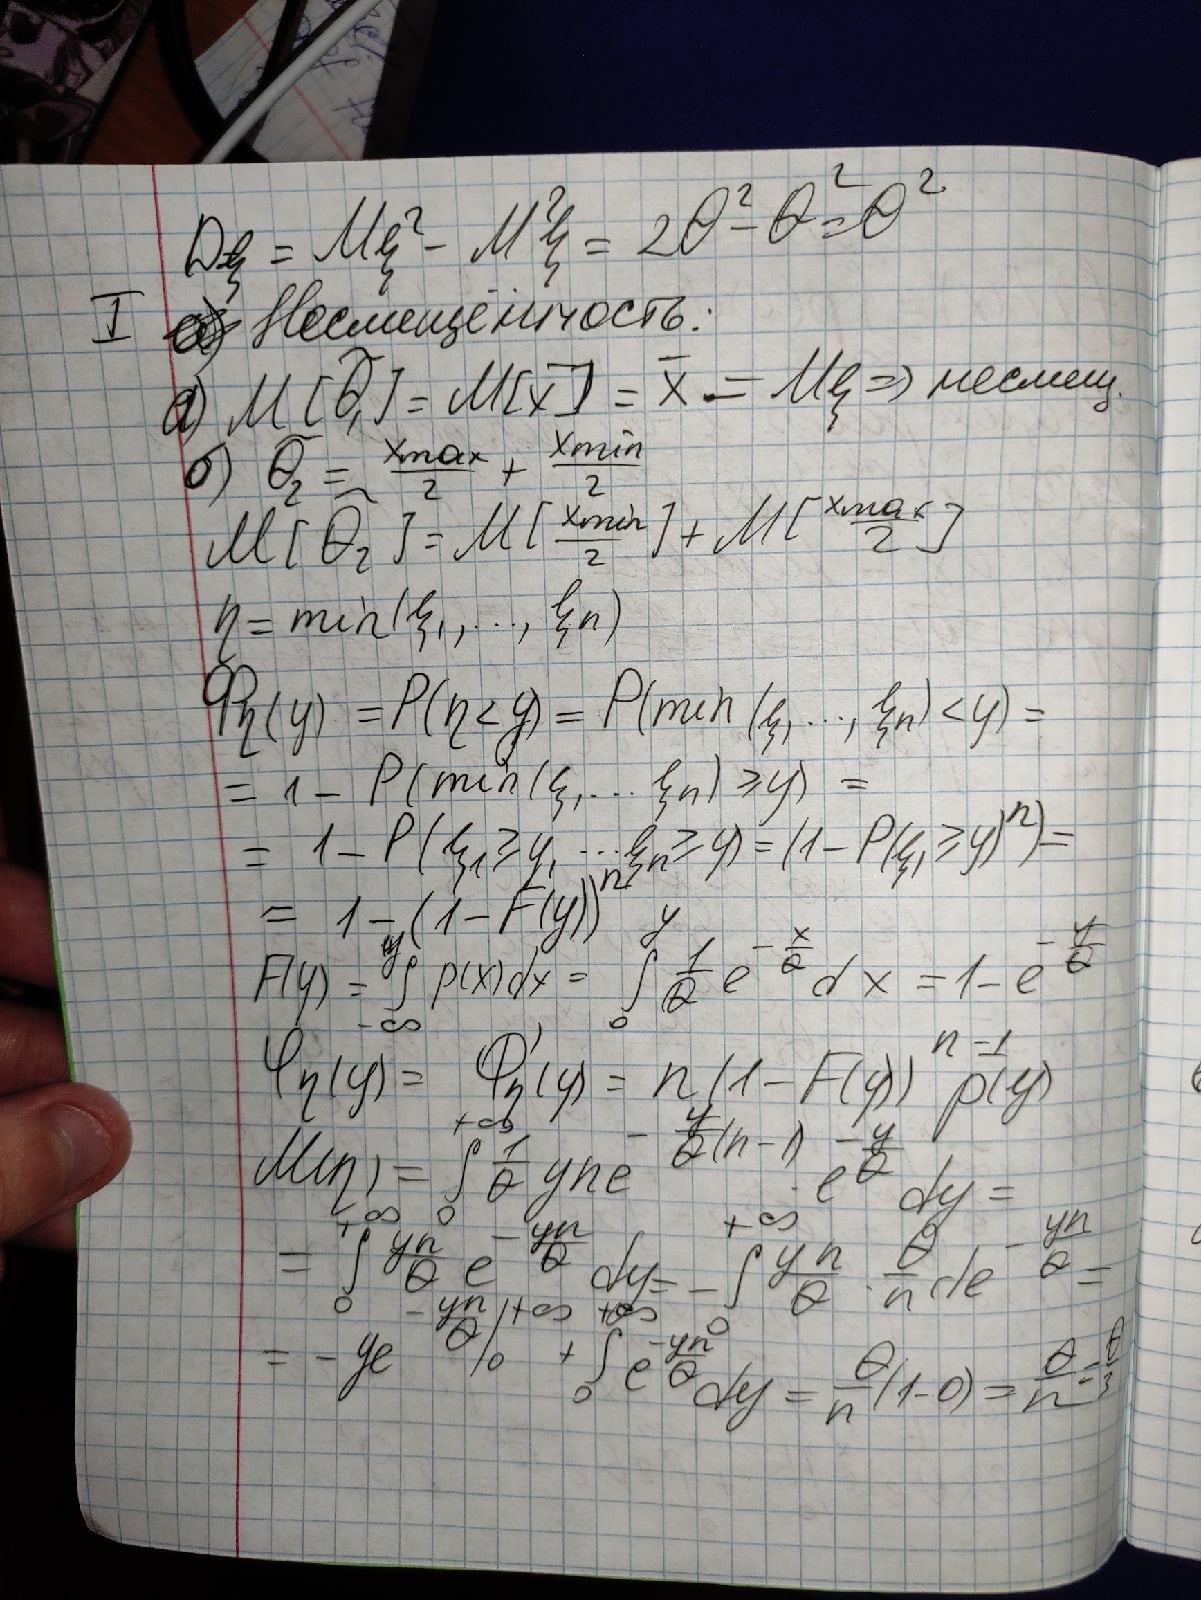 Dξ = Mξ² - M²ξ = 2θ² - θ² = θ²
I Несмещённость:
а) M[θ̃₁] = M[x̄] = x̄ = Mξ => несмещ.
б) θ̃₂ = xmax/2 + xmin/2
M[θ̃₂] = M[xmin/2] + M[xmax/2]
η = min(ξ₁, ..., ξn)
Φη(y) = P(η < y) = P(min(ξ₁, ..., ξn) < y) =
= 1 - P(min(ξ₁ ... ξn) ≥ y) =
= 1 - P(ξ₁ ≥ y, ... ξn ≥ y) = (1 - P(ξ₁ ≥ y)ⁿ) =
= 1 - (1 - F(y))ⁿ
F(y) = ∫_{-∞}^{y} p(x)dx = ∫_0^y 1/θ e^{-x/θ} dx = 1 - e^{-y/θ}
φη(y) = Φ'η(y) = n(1 - F(y))^{n-1} p(y)
M(η) = ∫_0^{+∞} 1/θ y n e^{-y/θ (n-1)} · e^{-y/θ} dy =
= ∫_0^{+∞} yn/θ e^{-yn/θ} dy = - ∫_0^{+∞} yn/θ · θ/n de^{-yn/θ} =
= - ye^{-yn/θ} |_0^{+∞} + ∫_0^{+∞} e^{-yn/θ} dy = θ/n (1-0) = θ/n = θ/3